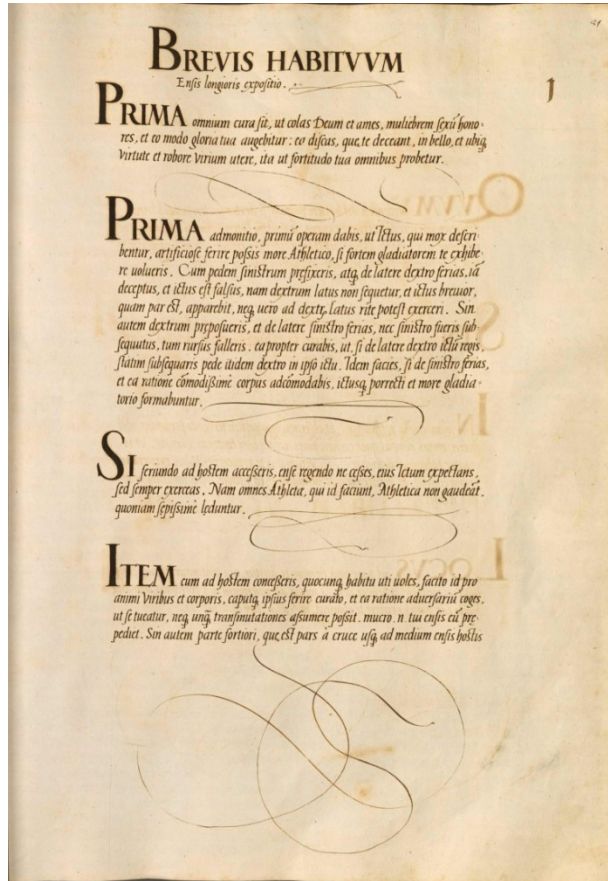 BREVIS HABITVVM
Ensis longioris expositio.
PRIMA omnium cura sit, ut colas Deum et ames, muliebrem sexū hono-
res, et eo modo gloria tua augebitur: eo discas, que te deceant, in bello, et ubiq,
virtute et robore virium utere, ita ut fortitudo tua omnibus probetur.
PRIMA admonitio, primū operam dabis, ut Ictus, qui mox descri
bentur, artificiose ferire possis more Athletico, si fortem gladiatorem te exhibe-
re uolueris. Cum pedem sinistrum prefixeris, atq, de latere dextro ferias, iā
deceptus, et ictus est falsus, nam dextrum latus non sequetur, et ictus breuior,
quam par est, apparebit, neq, uero ad dextr. latus rite potest exerceri. Sin
autem dextrum preposueris, et de latere sinistro ferias, nec sinistro fueris sub-
sequutus, tum rursus falleris. eapropter curabis, ut, si de latere dextro ictū regis,
statim subsequaris pede itidem dextro in ipso ictu. Idem facies, si de sinistro ferias,
et ea ratione cōmodissime corpus adcōmodabis, ictusq, porrecti et more gladia-
torio formabuntur.
SI feriundo ad hostem accesseris, ense regendo ne cesses, eius Ictum expectans,
sed semper exerceas. Nam omnes Athletae, qui id faciunt, Athletica non gaudēāt.
quoniam sepissime leduntur.
ITEM cum ad hostem concesseris, quocunq, habitu uti uoles, facito id pro
animi viribus et corporis, caputq, ipsius ferire curato, et ea ratione aduersariū coges,
ut se tueatur, neq, unq, transmutationes assumere possit. mucro. n. tui ensis eū pre-
pediet. Sin autem parte fortiori, que est pars a cruce usq, ad medium ensis hostis